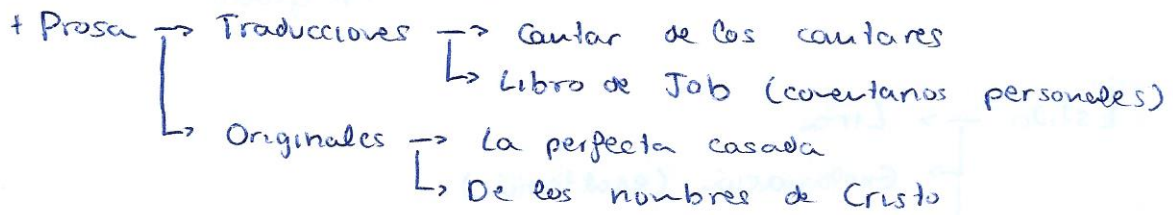 + Prosa → Traducciones → Cantar de los cantares
↳ Libro de Job (comentarios personales)
↳ Originales → La perfecta casada
↳ De los nombres de Cristo